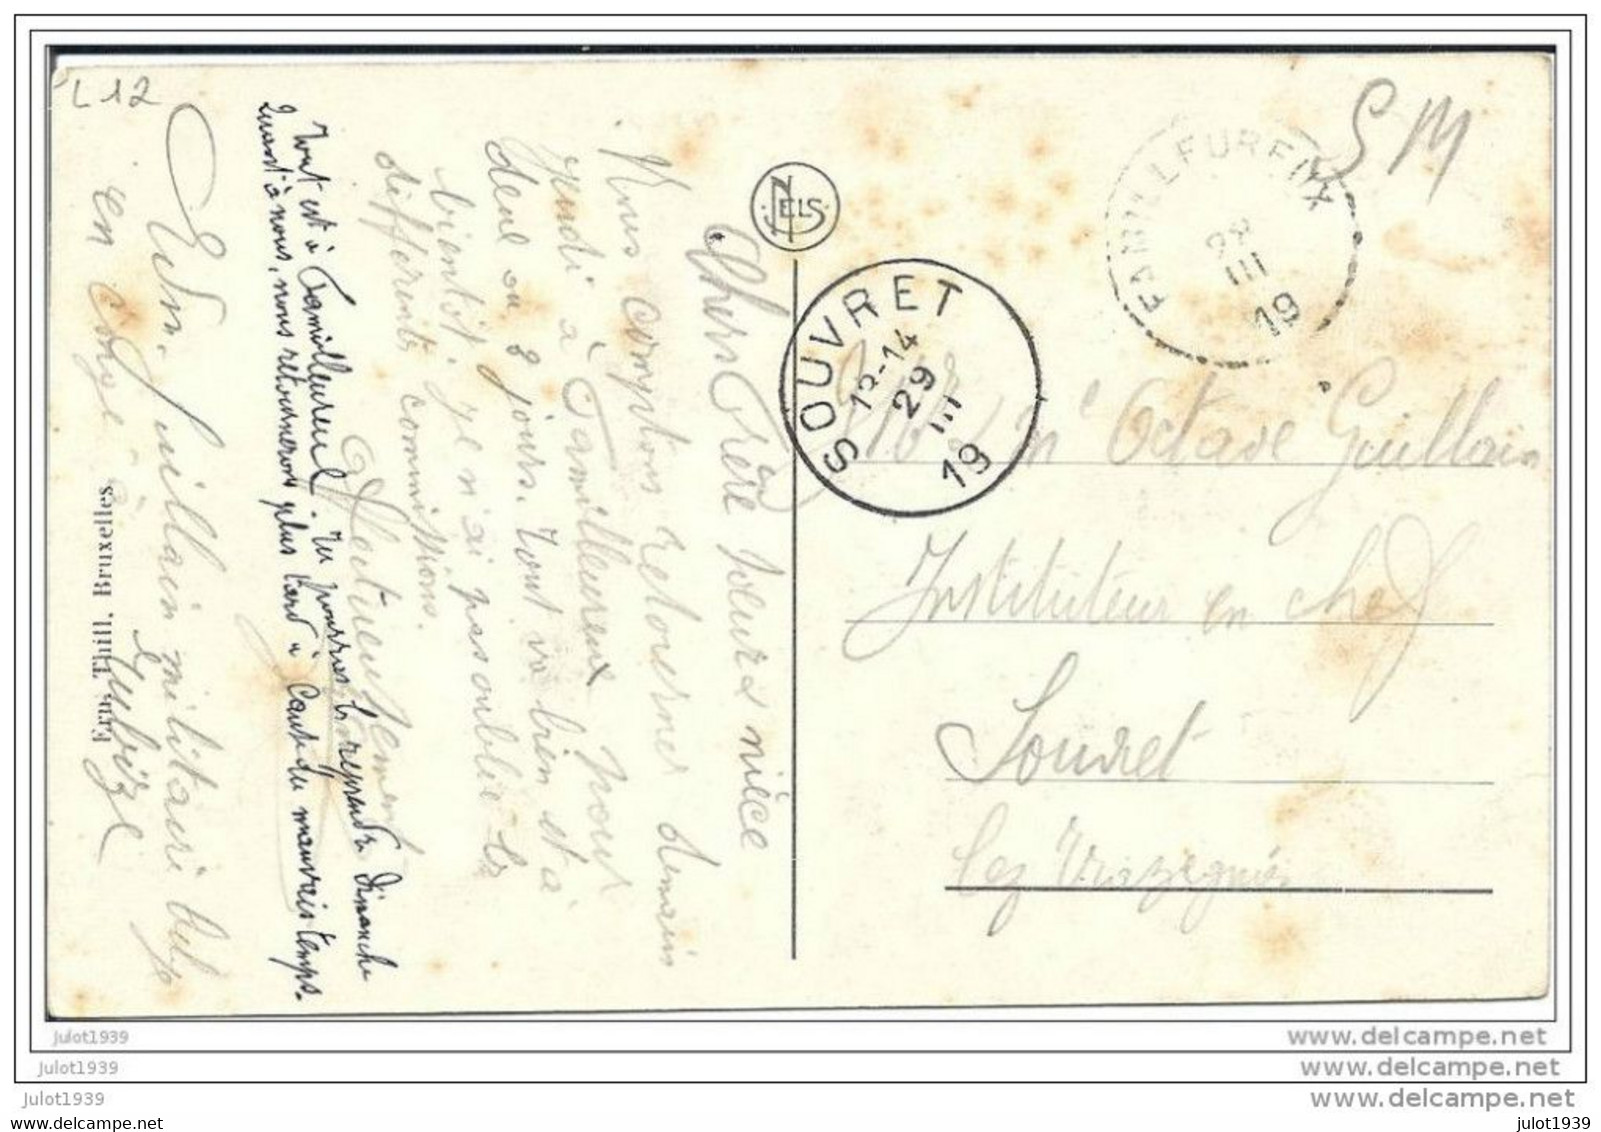 L12
S M
FAMILLEUREUX
28
III
19
SOUVRET
13-14
29
III
19
NELS
Mr Octave Guillain
Instituteur en chef
Souvret
lez
Chers Frère soeurs nièce
Nous comptons retourner demain
jeudi à Familleureux pour
deux ou 8 jours. Tout va bien et à
bientôt. Je n'ai pas oublié les
différents commissions.
Affectueusement
Tout est à Familleureux. Tu pourras le reprendre dimanche
Quant à nous, nous retournerons plus tard à cause du mauvais temps.
Edm. Guillain militaire belge
en congé à Gubize
Ern. Thill. Bruxelles
julot1939
www.delcampe.net
julot1939
www.delcampe.net
julot1939
www.delcampe.net
julot1939
julot1939